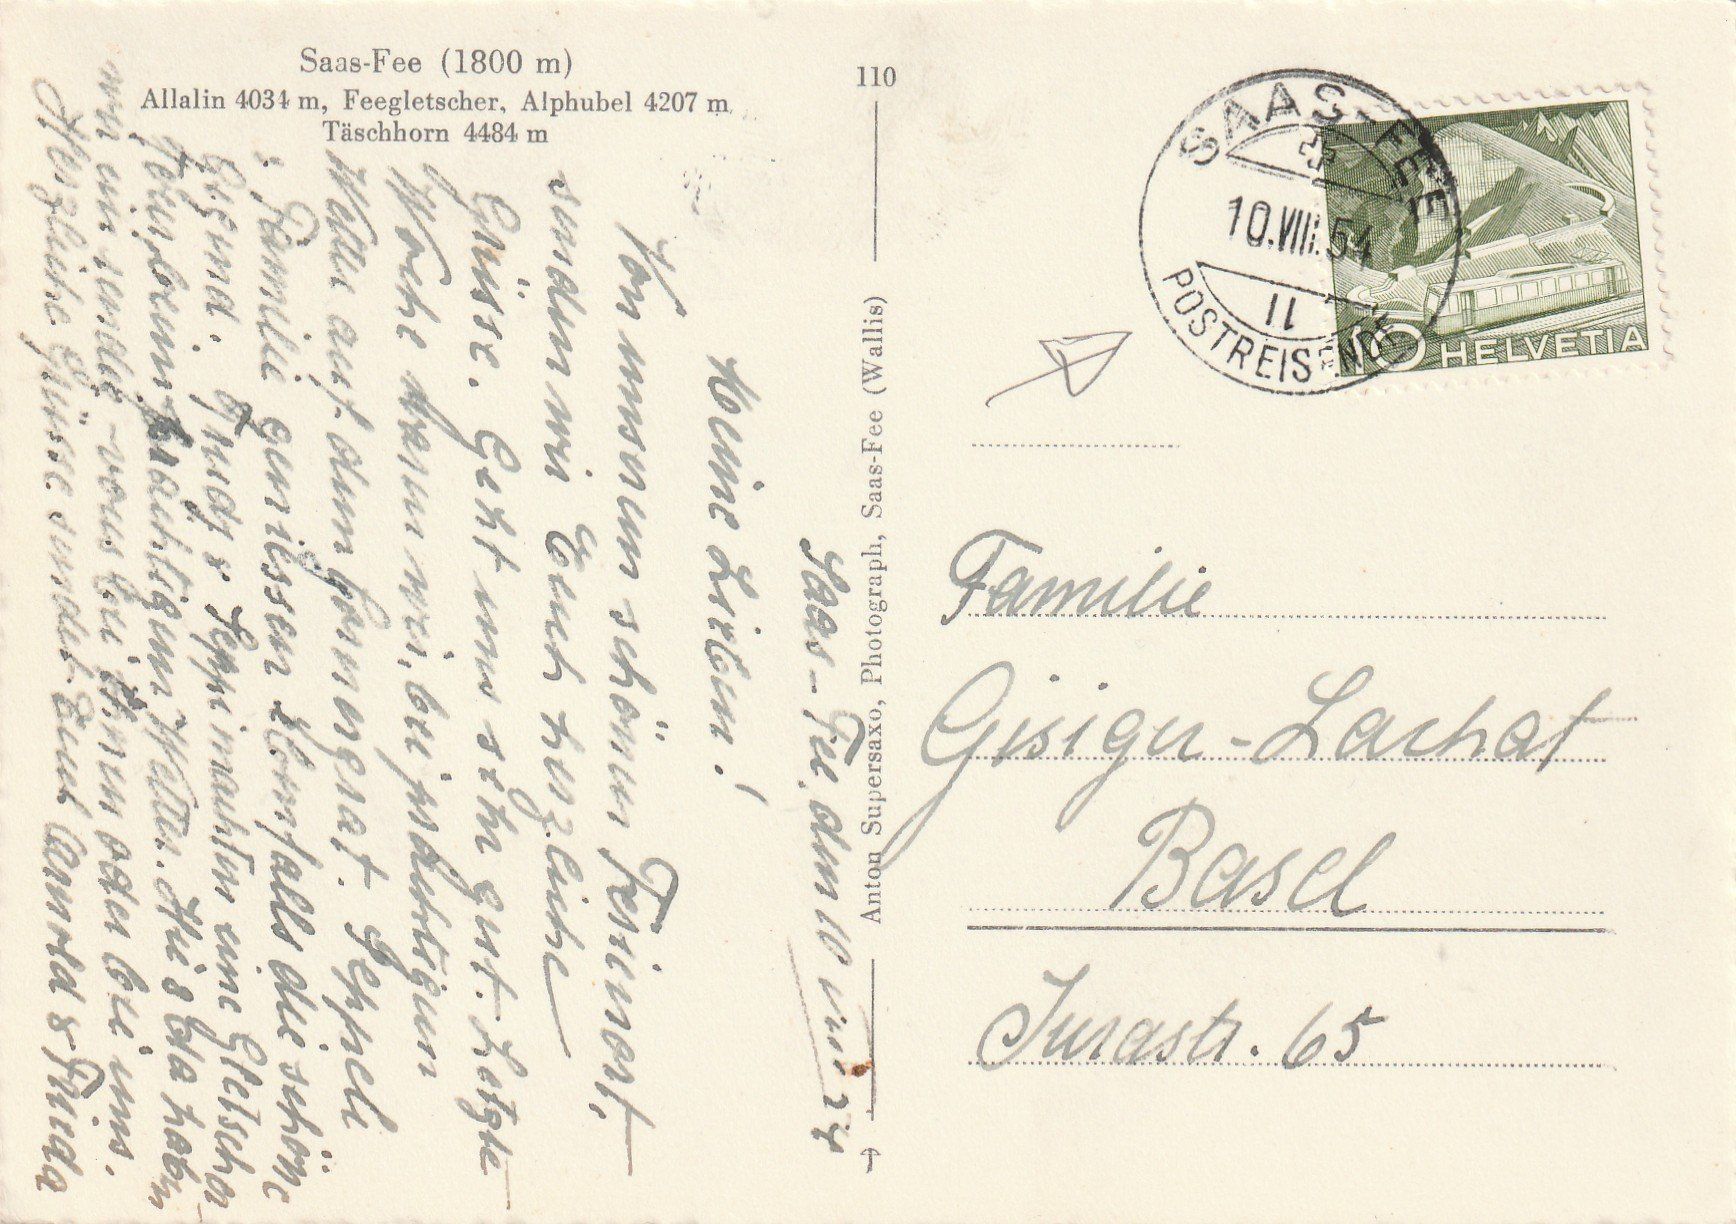 Saas-Fee (1800 m)
Allalin 4034 m, Feegletscher, Alphubel 4207 m
Täschhorn 4484 m
110
Anton Supersaxo, Photograph, Saas-Fee (Wallis)
SAAS-FEE
10.VIII.54
11
POSTREISENDE
10 HELVETIA
Saas-Fee, den 10
Meine Lieben!
Von unserem schönen Ferienort,
senden wir Euch herzliche
Grüsse. Geht uns sehr gut. Letzte
Woche waren wir, bei prächtigem
Wetter auf dem Gornergrat.
Familie geniessen ebenfalls die schöne
Gegend. & Seppi machten eine Gletscher
bei prachtigem Wetter.
wir ein bei ihnen oder bei uns.
Herzliche Grüsse sendet Euch Arnold & Frieda
Familie
Gisiger-Lachat
Basel
Jurastr. 65